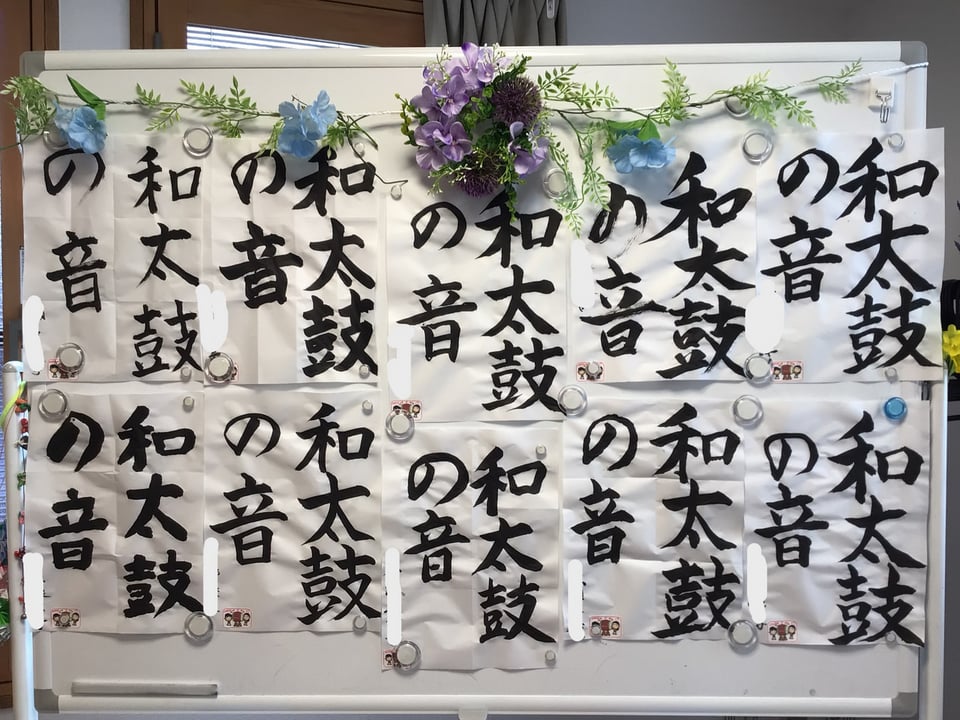 和太鼓
の音
和太鼓
の音
和太鼓
の音
和太鼓
の音
和太鼓
の音
和太鼓
の音
和太鼓
の音
和太鼓
の音
和太鼓
の音
和太鼓
の音